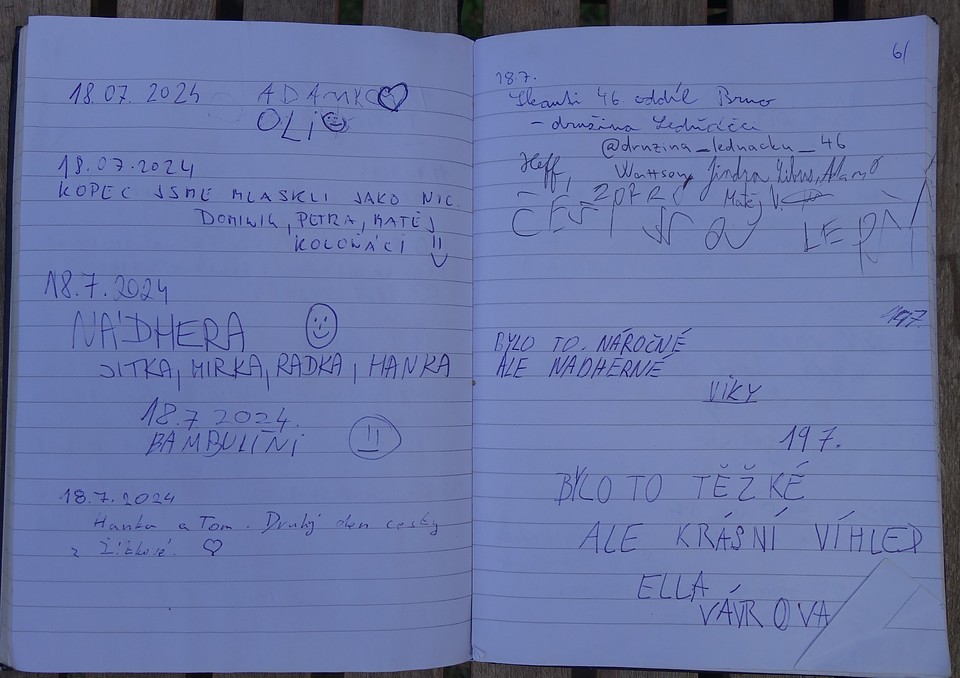 18.07.2024 ADAMKO
OLI
18.07.2024
KOPEC JSME MLASKLI JAKO NIC
DOMINIK, PETRA, MATĚJ
KOLOŇÁCI !!
18.7.2024
NÁDHERA
JITKA, MIRKA, RADKA, HANKA
18.7 2024.
BAMBULÍNI
18.7.2024
Hanka a Tom. Druhý den cesty
z Žítkové.
61
18.7.
Skauti 46 oddíl Brno
- družina
@druzina_lednacku_46
Heff, Wattson, Jindra, Libus, Adam
Matěj V.
197.
BYLO TO. NÁROČNÉ
ALE NADHERNÉ
VIKY
197.
BYLO TO TĚŽKÉ
ALE KRÁSNÍ VÍHLED
ELLA
VÁVROVA